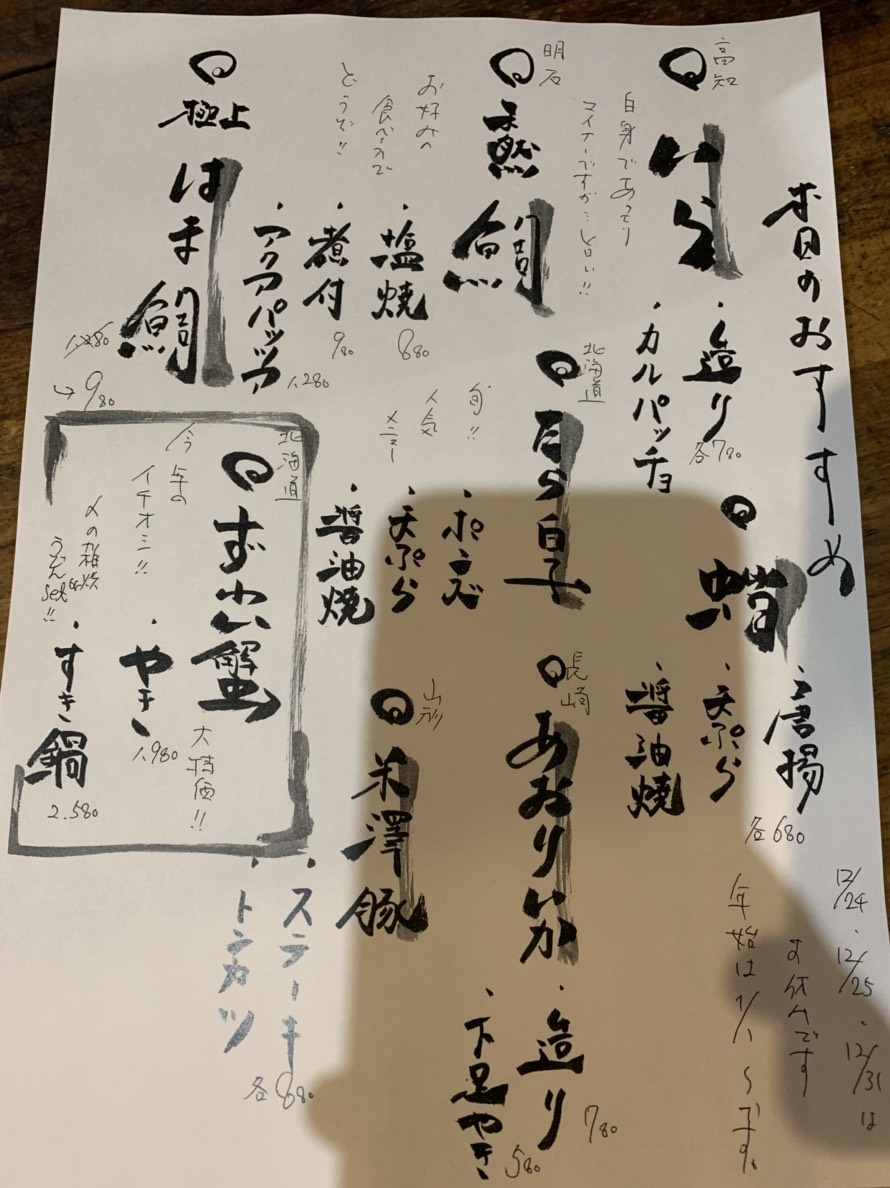 本日のおすすめ
高知
いら
白身であっさり
マイナーですが…旨い!!
・造り
・カルパッチョ
各780
蛸
・唐揚
・天ぷら
・醤油焼
各680
12/24、12/25、12/31は
お休みです
年始は1/1〜です。
明石
天然
鯛
お好みの
食べ方で
どうぞ!!
・塩焼
880
・煮付
980
・アクアパッツア
1,280
北海道
たら白子
旬!!
人気
メニュー
・ポンズ
・天ぷら
・醤油焼
長崎
あおりいか
・造り
780
・下足やき
580
極上
はま鯛
1,280
→980
北海道
ずわい蟹
大特価!!
今年の
イチオシ!!
・やき
1,980
〆の雑炊
うどんset
・すき鍋
2.580
山形
米澤豚
・ステーキ
・トンカツ
各880